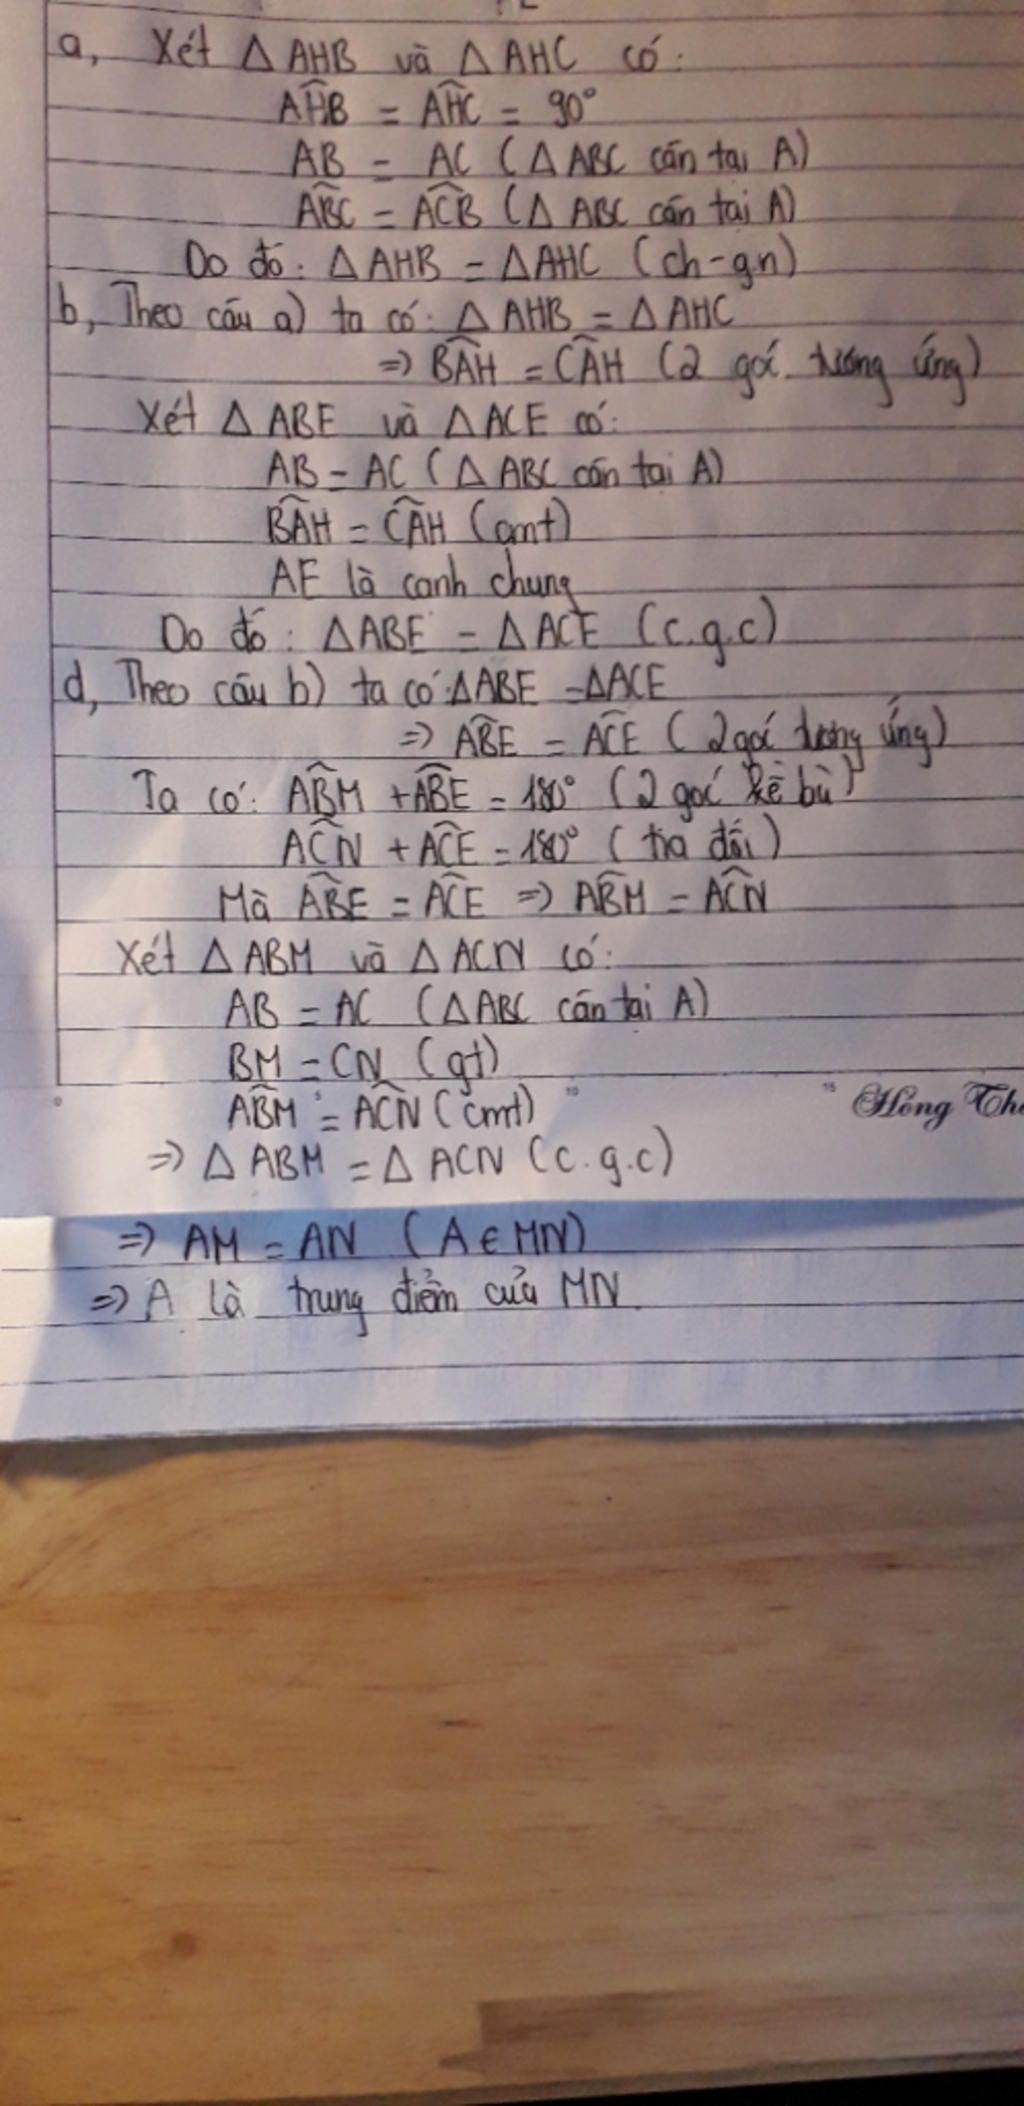 a, Xét △ AHB và △ AHC có:
AĤB = AĤC = 90°
AB = AC (△ ABC cân tại A)
AB̂C = AĈB (△ ABC cân tại A)
Do đó: △ AHB = △ AHC (ch-gn)
b, Theo câu a) ta có: △ AHB = △ AHC
=> BÂH = CÂH (2 góc tương ứng)
Xét △ ABE và △ ACE có:
AB = AC (△ ABC cân tại A)
BÂH = CÂH (cmt)
AE là cạnh chung
Do đó: △ ABE = △ ACE (c.g.c)
d, Theo câu b) ta có: △ABE = △ACE
=> AB̂E = AĈE (2 góc tương ứng)
Ta có: AB̂M + AB̂E = 180° (2 góc kề bù)
AĈN + AĈE = 180° (tia đối)
Mà AB̂E = AĈE => AB̂M = AĈN
Xét △ ABM và △ ACN có:
AB = AC (△ ABC cân tại A)
BM = CN (gt)
AB̂M = AĈN (cmt)
10 15 Hồng Th
=> △ ABM = △ ACN (c.g.c)
=> AM = AN (A ∈ MN)
=> A là trung điểm của MN.